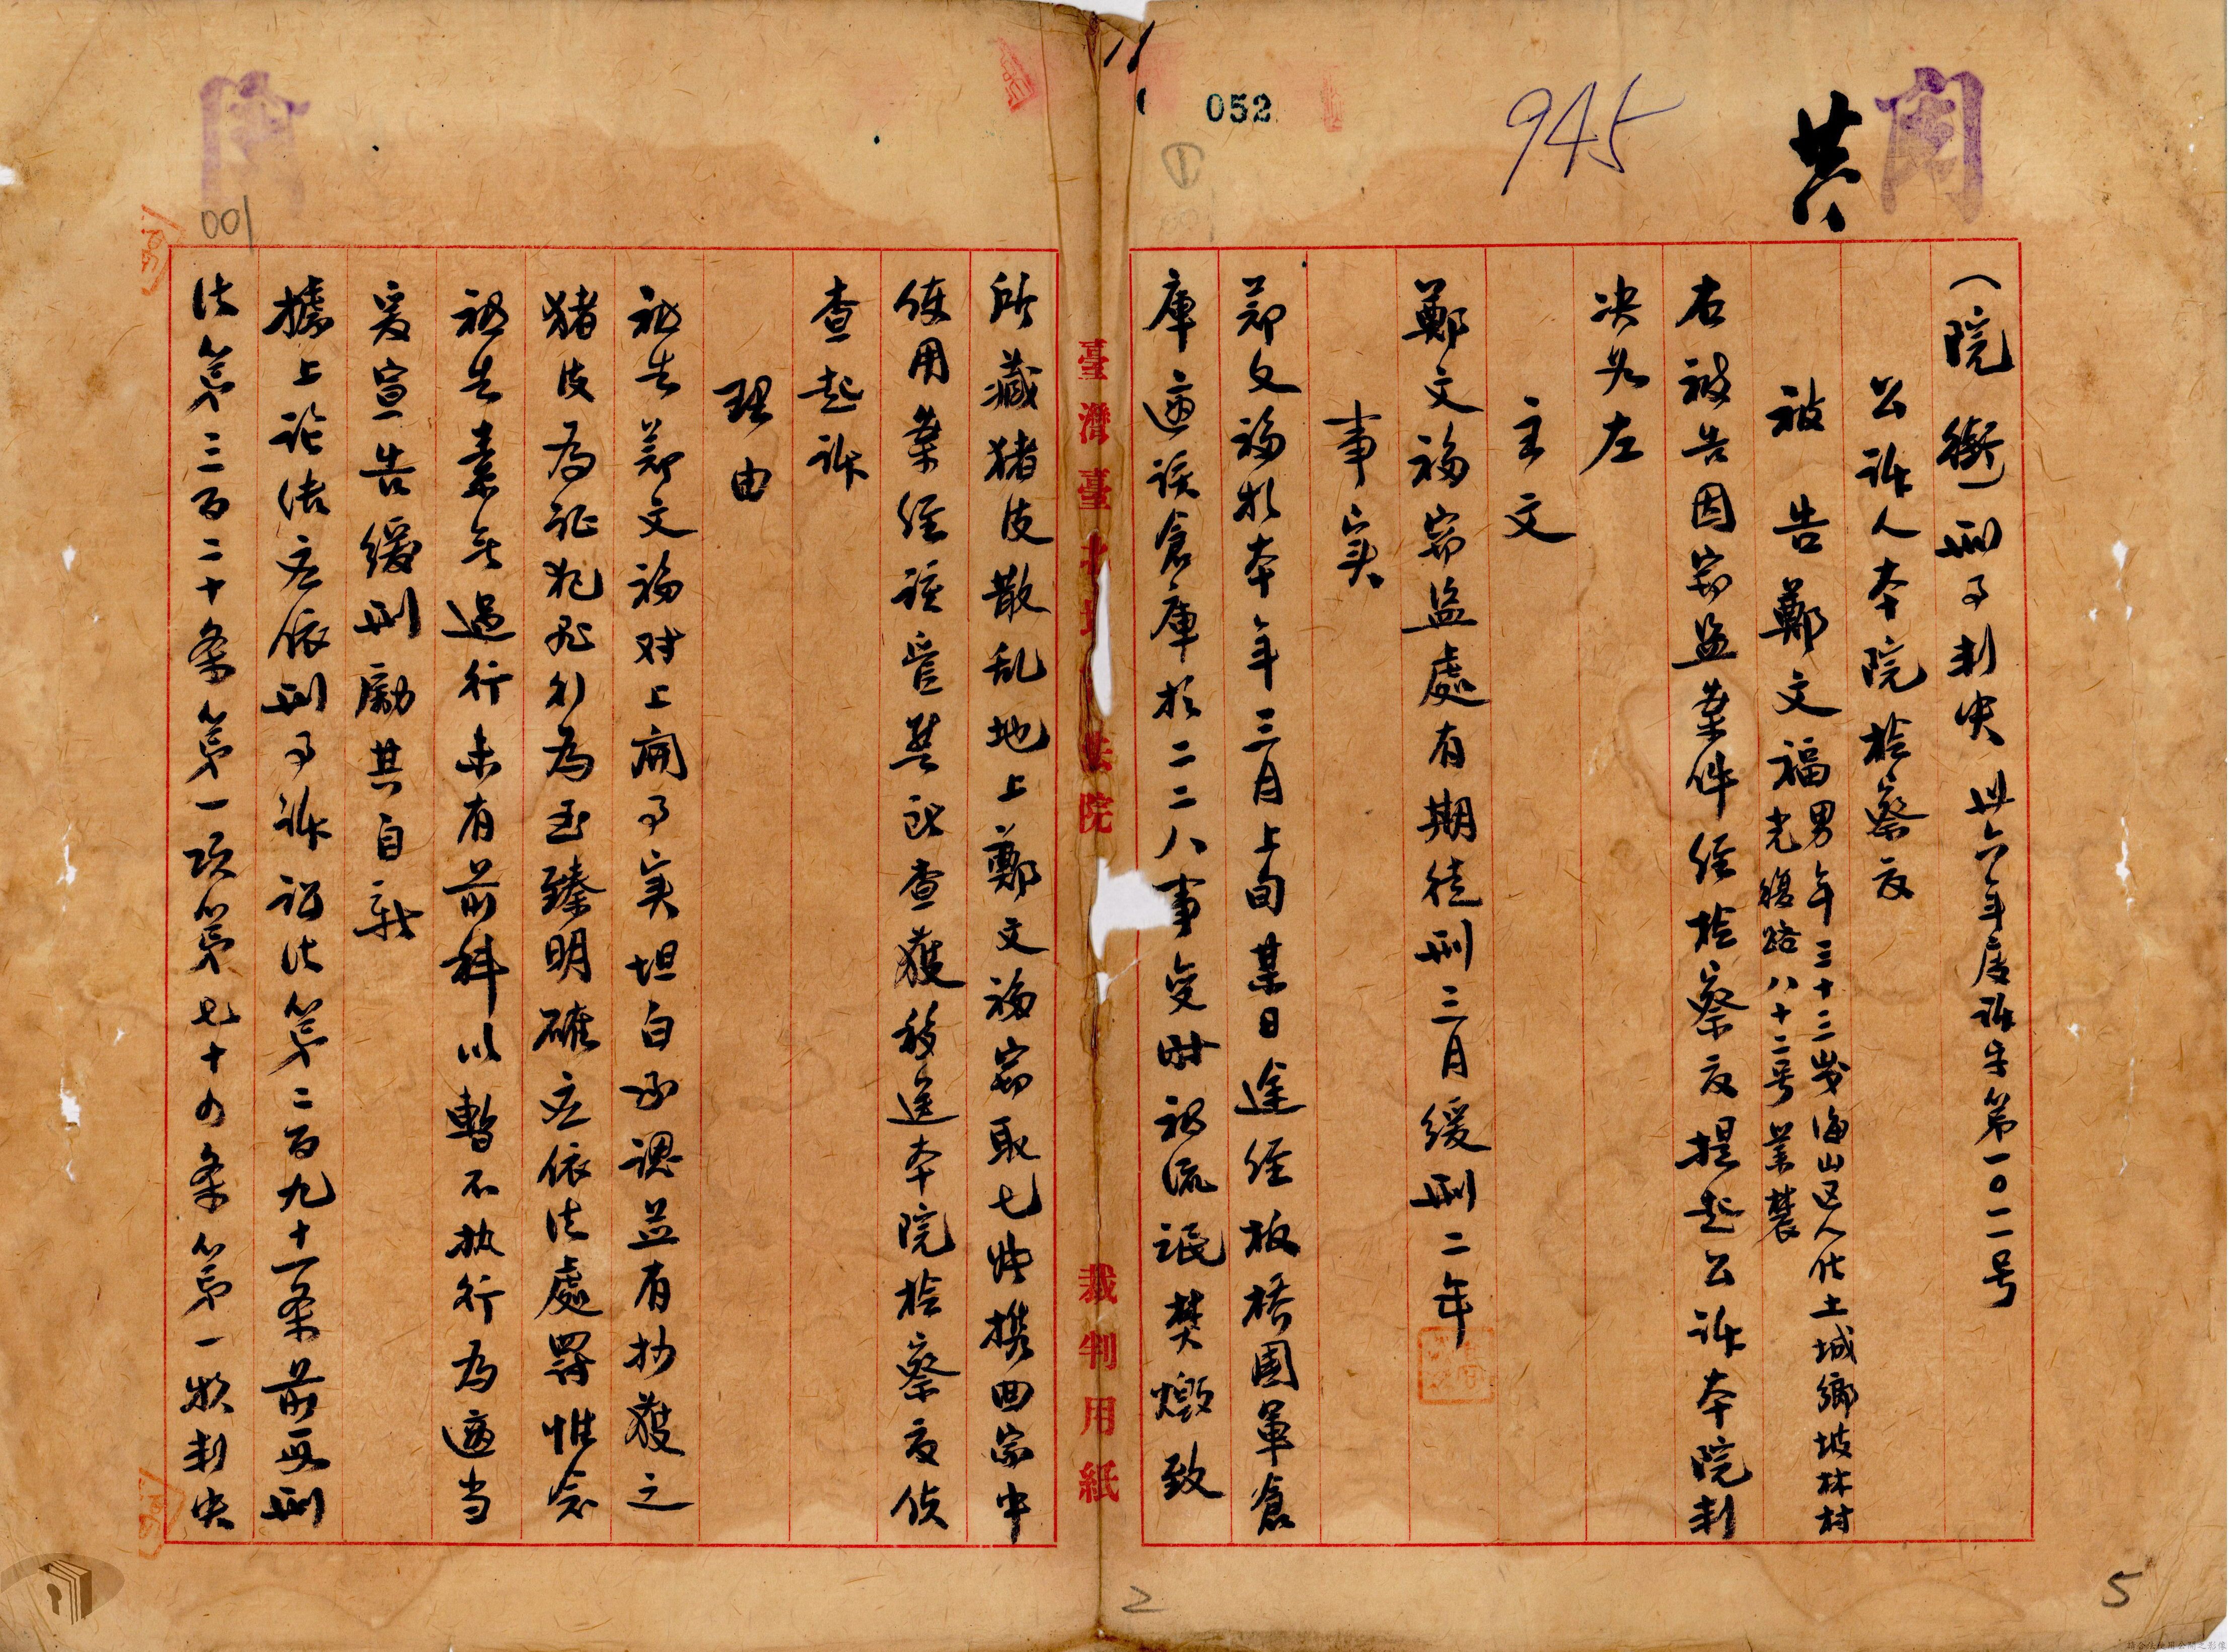 052
945
共
(院銜)刑事判決 卅六年度訴字第一〇一一号
公訴人本院检察官
被告 鄭文福 男年三十三歲海山区人住土城鄉坡林村
光復路八十二号 業農
右被告因窃盗案件經检察官提起公訴本院判
决如左
主文
鄭文福窃盗處有期徒刑三月缓刑二年
事実
郑文福於本年三月上旬某日途经板橋国軍倉
庫適該倉庫於二二八事变時被流氓焚燬致
臺灣臺北地 法院 裁判用紙
所藏猪皮散乱地上鄭文福窃取七 携回家中
使用案經該管 查獲移送本院检察官侦
查起訴
理由
被告郑文福对上開事実坦白承認并有抄獲之
猪皮为证犯罪行为至臻明確应依法處罪惟念
被告素无過行未有前科以暫不执行为適当
爰宣告缓刑勵其自新
據上論结应依刑事訴訟法第二百九十一条前段刑
法第三百二十条第一項第七十四条第一款判决
001
2
5